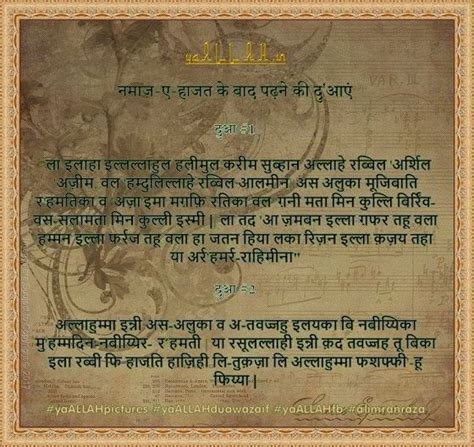 yaALLAH.in
नमाज़-ए-हाजत के बाद पढ़ने की दु'आएं
दुआ #1
"ला इलाहा इल्लल्लाहुल हलीमुल करीम सुब्हान अल्लाहे रब्बिल 'अर्शिल
अज़ीम, वल 'हम्दुलिल्लाहे रब्बिल आलमीन, अस अलुका मूजिबाति
र'हमतिका व अज़ा'इमा मग़फ़ि रतिका वल गनी मता मिन कुल्लि बिर्रिंव-
वस-सलामता मिन कुल्ली इस्मी | ला तद 'आ ज़मवन इल्ला ग़फर तहू वला
हम्मन इल्ला फर्रज तहू वला हा जतन हिया लका रिज़न इल्ला क़ज़य तहा
या अर्र'हमर्र-राहिमीना"
दुआ #2
अल्लाहुम्मा इन्नी अस-अलुका व अ-तवज्जहु इलयका बि नबीय्यिका
मु'हम्मदिन-नबीय्यिर- र'हमती | या रसूलल्लाही इन्नी क़द तवज्जहतू बिका
इला रब्बी फि हाजति हाज़िही लि-तुक़ज़ा लि अल्लाहुम्मा फशफ्फी'हू
फिय्या |
#yaALLAHpictures #yaALLAHduawazaif #yaALLAHfb #alimranraza